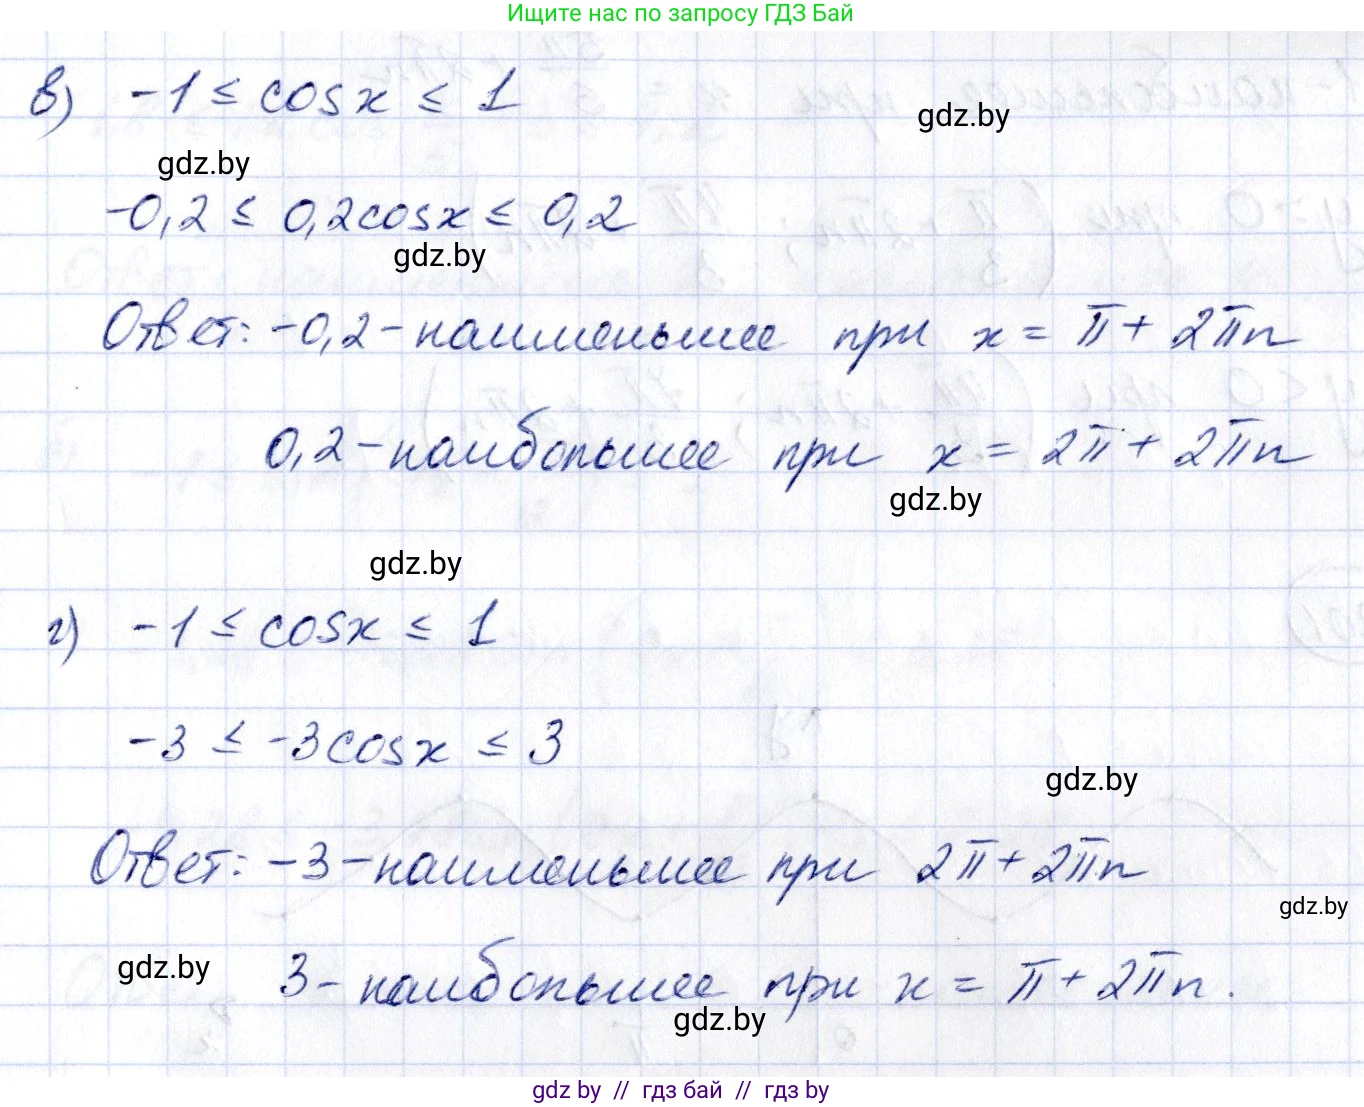 Ищите нас по запросу ГДЗ Бай
в) -1 ≤ cosx ≤ 1
gdz.by
gdz.by
-0,2 ≤ 0,2cosx ≤ 0,2
gdz.by
Ответ: -0,2 - наименьшее при x = π + 2πn
0,2 - наибольшее при x = 2π + 2πn
gdz.by
gdz.by
г) -1 ≤ cosx ≤ 1
-3 ≤ -3cosx ≤ 3
gdz.by
Ответ: -3 - наименьшее при 2π + 2πn
gdz.by
gdz.by
3 - наибольшее при x = π + 2πn.
gdz.by
gdz by // гдз бай // гдз by